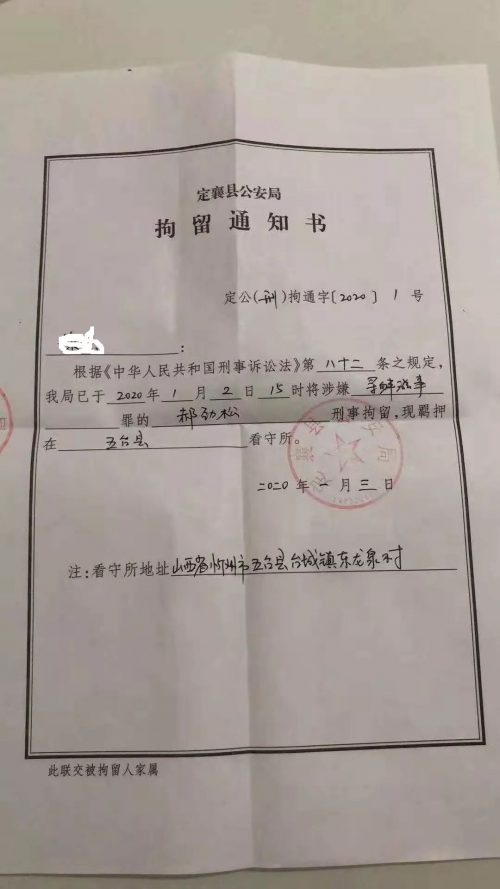 定襄县公安局
拘留通知书
定公(刑)拘通字[2020] 1 号
:
根据《中华人民共和国刑事诉讼法》第 八十二 条之规定,
我局已于 2020 年 1 月 2 日 15 时将涉嫌 寻衅滋事
罪的 郝劲松 刑事拘留,现羁押
在 五台县 看守所。
二〇二〇年一月三日
注:看守所地址 山西省忻州市五台县台城镇东龙泉村
此联交被拘留人家属